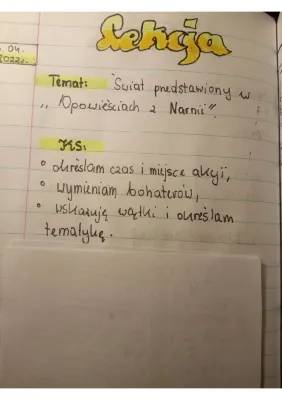 Lekcja
.04.
2022r.
Temat: "Świat predstawiony w
,, Opowieściach z Narnii".
KS:
° określam czas i miejsce akcji,
° wymieniam bohaterów,
° wskazuję wątki i określam
tematykę.